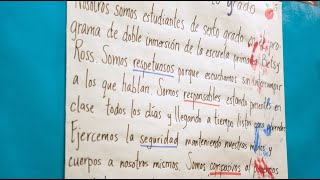 grado
Nosotros somos estudiantes de sexto grado pro-
grama de doble inmersión de la escuela Betsy
Ross. Somos respetuosos porque escuchamos sin interrumpir
a los que hablan. Somos responsables estando presentes en
clase todos los días y llegando a tiempo listos para
Ejercemos la seguridad manteniendo nuestras manos y
cuerpos a nosotros mismos. Somos